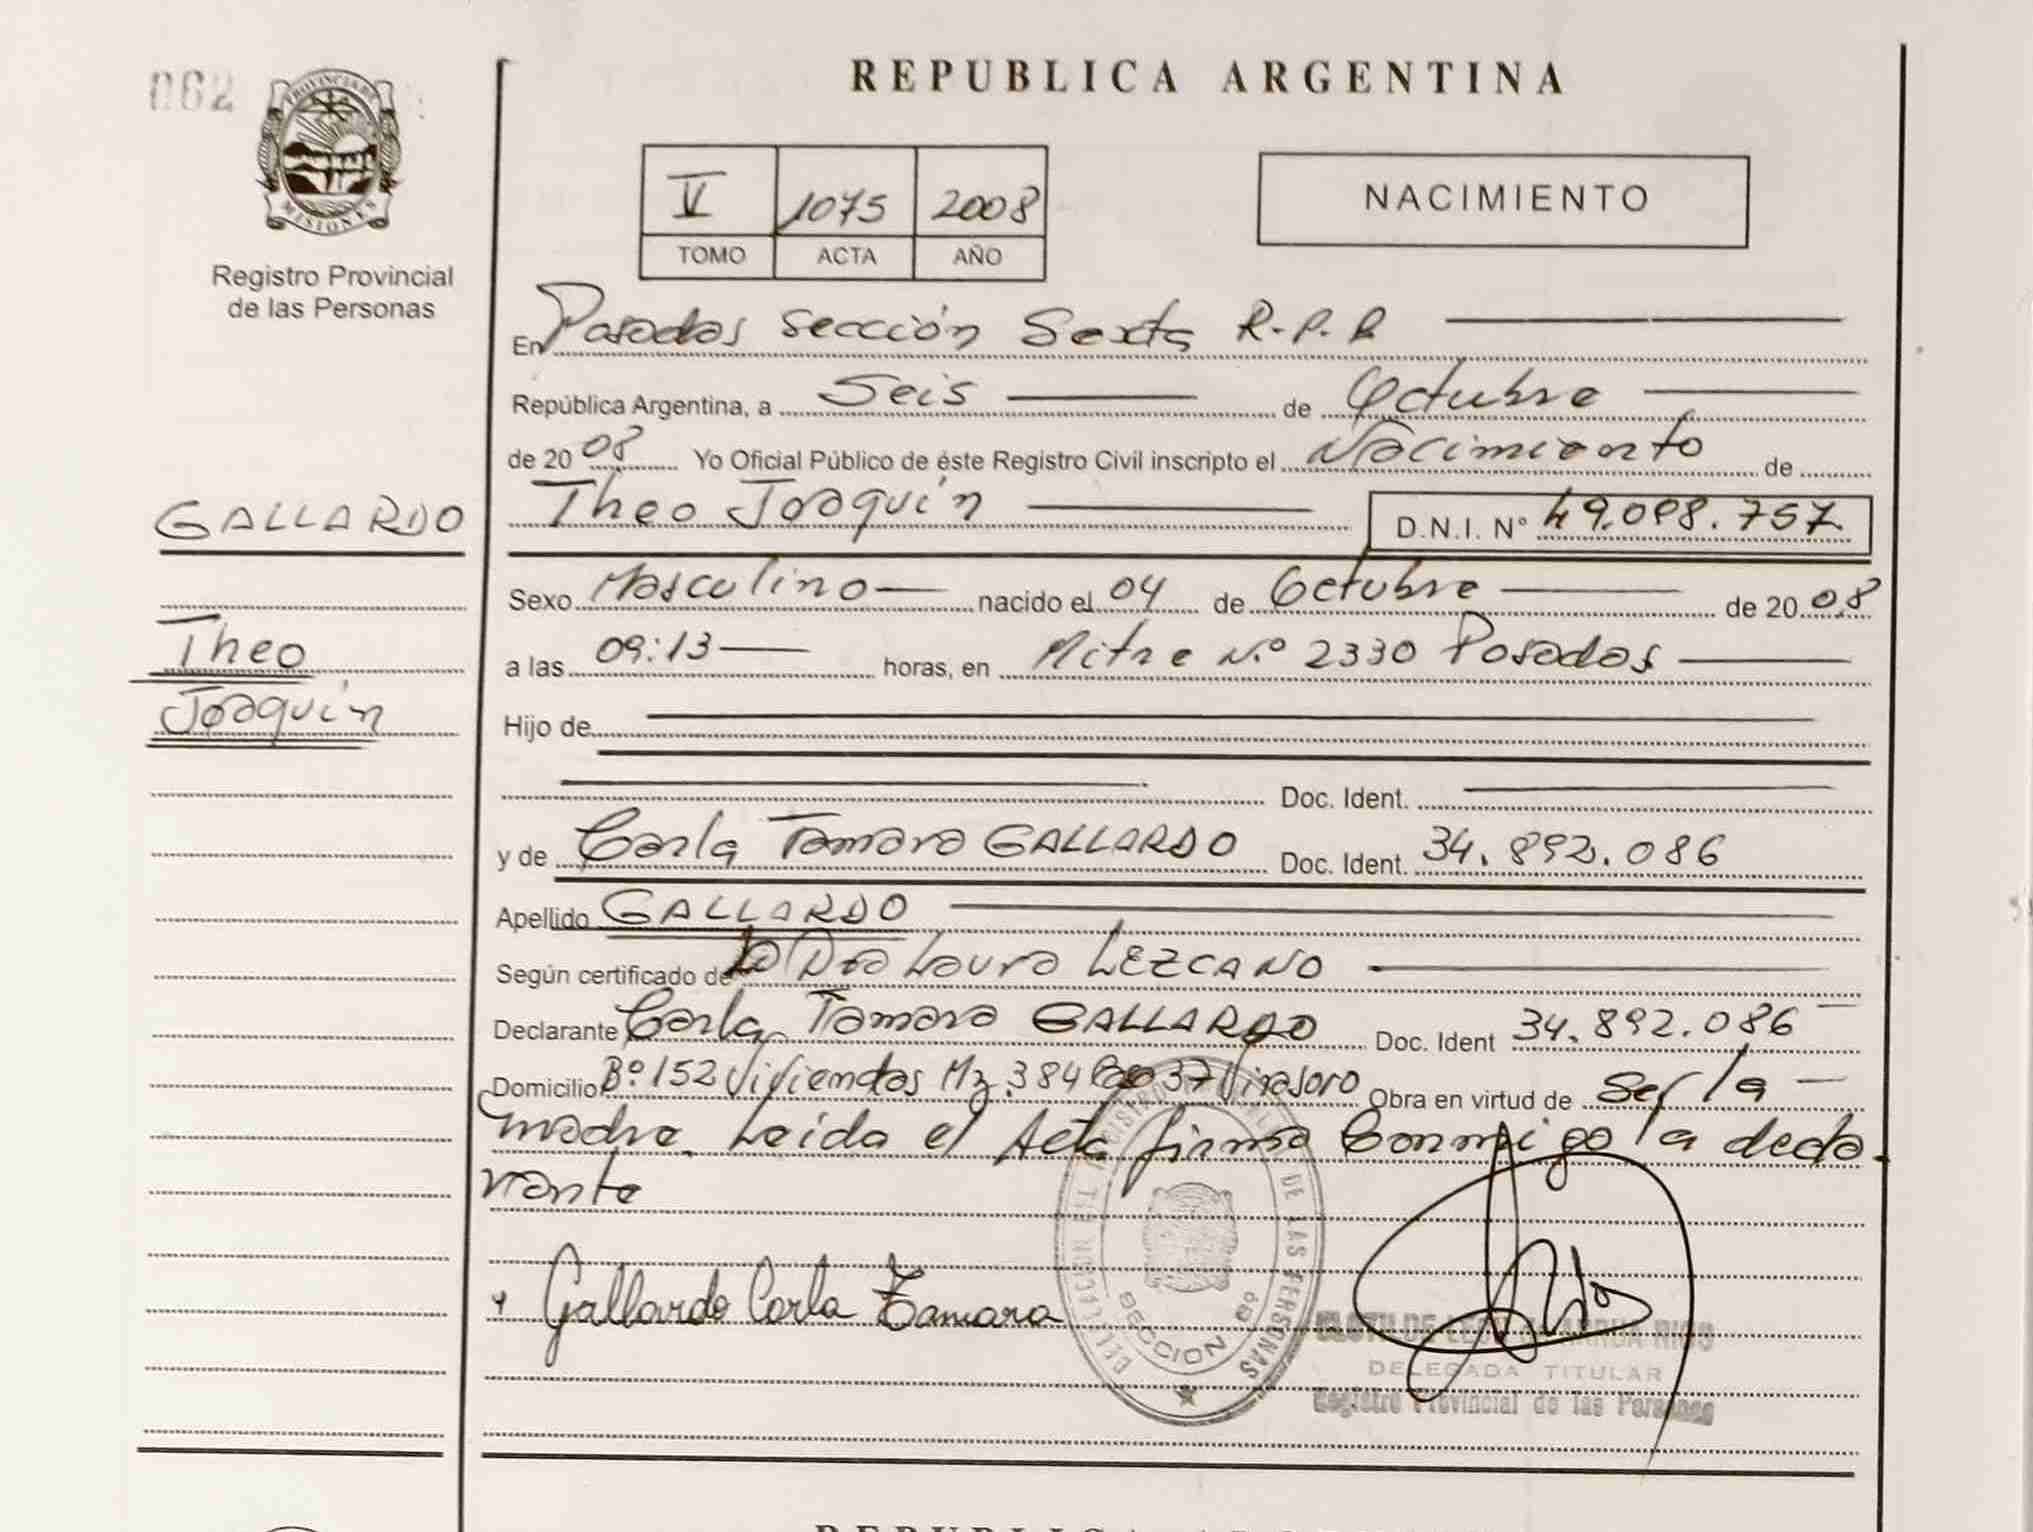 062
PROVINCIA DE
MISIONES
Registro Provincial
de las Personas
REPUBLICA ARGENTINA
V 1075 2008
TOMO ACTA AÑO
NACIMIENTO
En Posadas Sección Sexta R.P.P.
República Argentina, a Seis de Octubre
de 2008 Yo Oficial Público de éste Registro Civil inscripto el Nacimiento de
Theo Joaquín D.N.I. Nº 49.098.757
GALLARDO
Theo
Joaquín
Sexo Masculino nacido el 04 de Octubre de 2008
a las 09:13 horas, en Mitre Nº 2330 Posadas
Hijo de
Doc. Ident.
y de Carla Tamara GALLARDO Doc. Ident. 34.892.086
Apellido GALLARDO
Según certificado de la Dra Laura LEZCANO
Declarante Carla Tamara GALLARDO Doc. Ident 34.892.086
Domicilio Bº 152 Viviendas Mz 384 37 Virasoro Obra en virtud de Ser la
madre. Leida el Acta firma Conmigo la decla-
rante
Gallardo Carla Tamara
DE LAS PERSONAS
SECCION 6º
DELEGADA TITULAR
Registro Provincial de las Personas